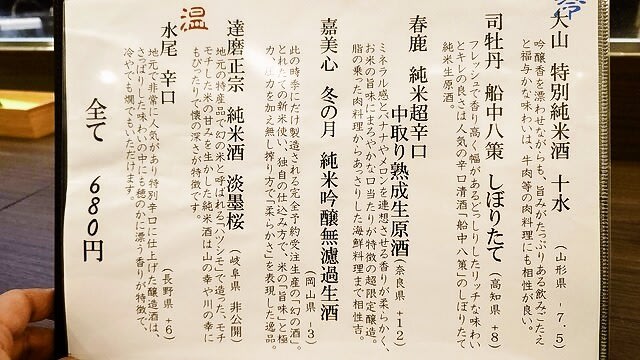 冷
大山 特別純米酒 十水
(山形県 -7.5)
吟醸香を漂わせながらも、旨みがたっぷりある飲みごたえ
と福与かな味わいは、牛肉等の肉料理にも相性が良い。
司牡丹 船中八策 しぼりたて
(高知県 +8)
フレッシュで香り高く幅があるどっしりしたリッチな味わい
とキレの良さは人気の辛口清酒「船中八策」のしぼりたて
純米生原酒。
春鹿 純米超辛口
中取り熟成生原酒
(奈良県 +12)
ミネラル感とバナナやメロンを連想させる香りが柔らかく、
お米の旨味にまろやかな口当たりが特徴の超限定醸造。
脂の乗った肉料理からあっさりした海鮮料理まで相性吉。
嘉美心 冬の月 純米吟醸無濾過生酒
(岡山県 -3)
此の時季にだけ製造される完全予約受注生産の「幻の酒」。
とれたての新米使い、独自の仕込み方で、米の「旨味」と極
力、圧力を加え無し搾り方で「柔らかさ」を表現した逸品。
温
達磨正宗 純米酒 淡墨桜
(岐阜県 非公開)
地元の特産品で幻の米と呼ばれる「ハツシモ」で造った、モチ
モチした米の甘みを生かした純米酒は山の幸や川の幸に
もぴったりで懐の深さが特徴です。
水尾 辛口
(長野県 +6)
地元で非常に人気があり特別辛口に仕上げた醸造酒は、
さっぱりした味わいの中にも穂のかに漂う香りが特徴で、
冷やでも燗でもいただけます。
全て 680円